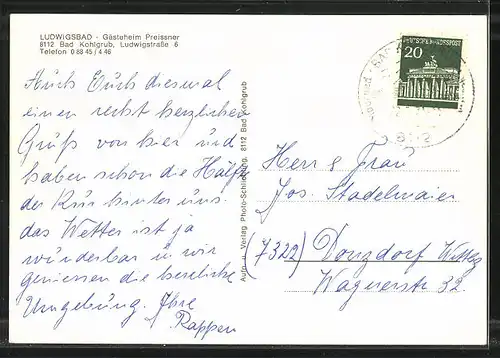 LUDWIGSBAD - Gästeheim Preissner
8112 Bad Kohlgrub, Ludwigstraße 6
Telefon 0 88 45 / 4 46
Auch Euch diesmal
einen recht herzlichen
Gruß von hier und
haben schon die Hälfte
der Kur hinter uns.
das Wetter ist ja
wunderbar u. wir
geniessen die herrliche
Umgebung. Ihre
Rappen
Aufn. u. Verlag Photo-Schilling, 8112 Bad Kohlgrub
DEUTSCHE BUNDESPOST
20
8112
Herr & Frau
Jos. Stadelmaier
(7322) Donzdorf Wttbg
Wagnerstr 32.